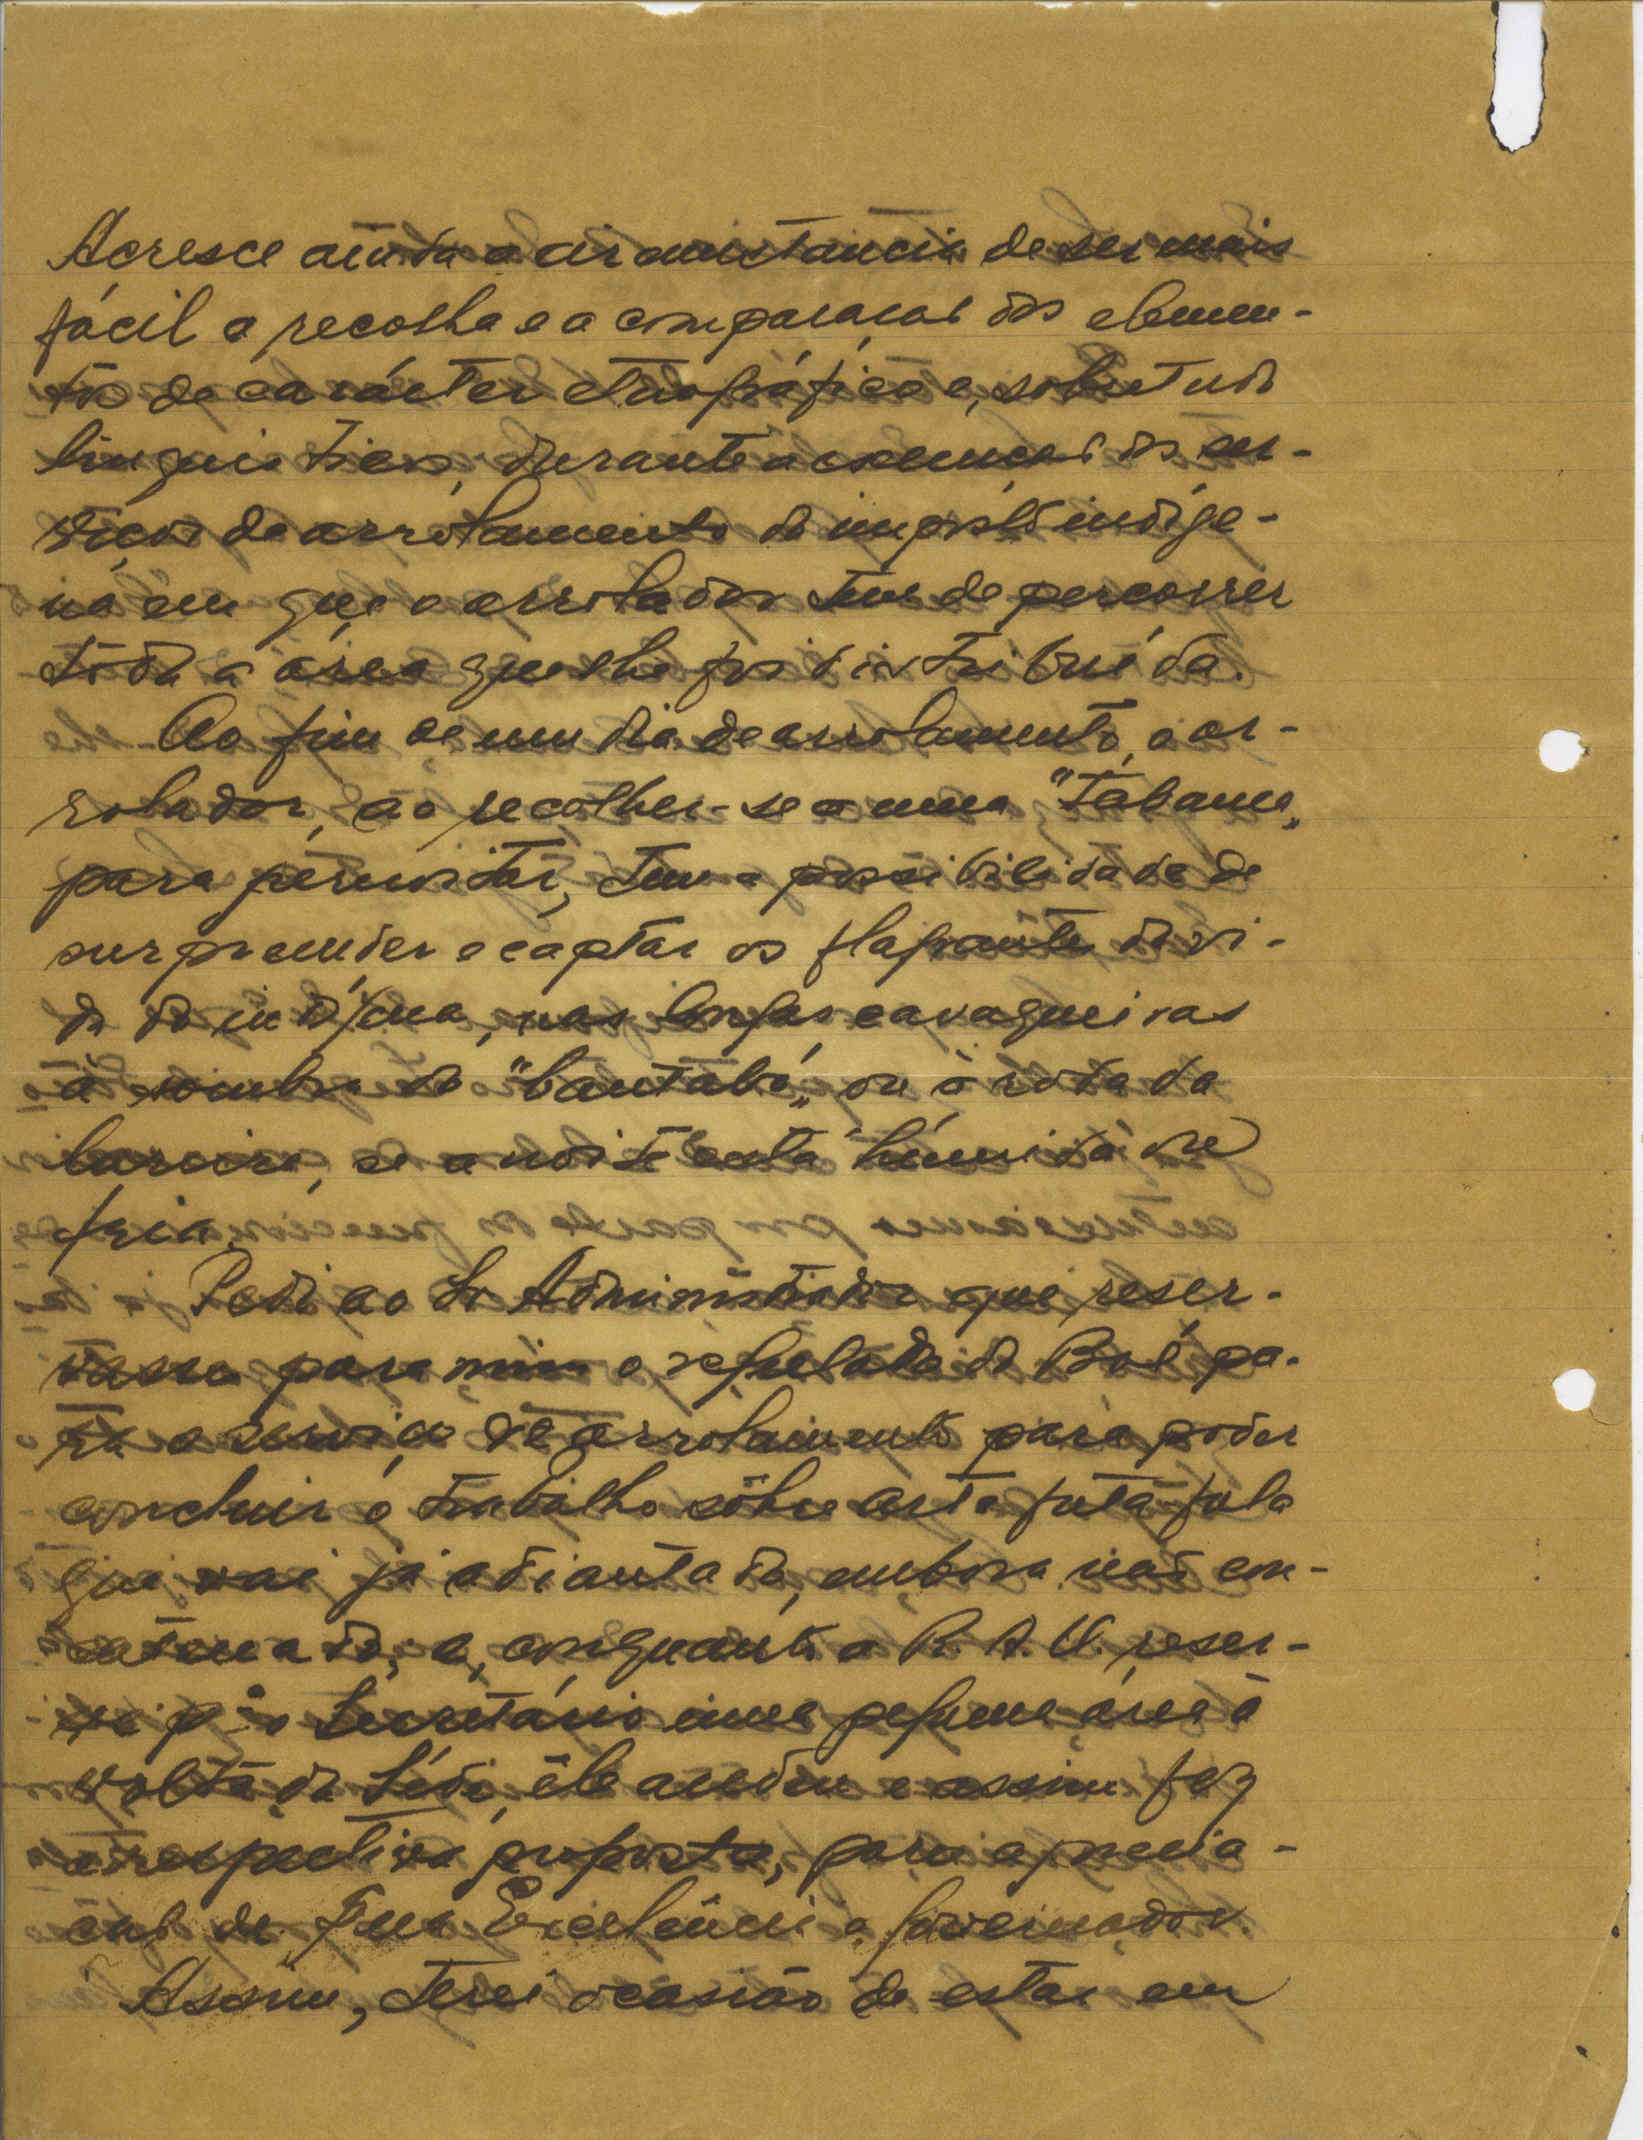 Acresce ainda a circunstancia de ser mais
fácil a recolha e a comparação dos elemen-
tos de carácter etnográfico e, sobretudo
linguistico, durante a execução dos ser-
viços de arrolamento do impôsto indíge-
na em que o arrolador tem de percorrer
tôda a área que lhe foi distribuída.
Ao fim de um dia de arrolamento, o ar-
rolador, ao recolher-se a uma "Tabanca"
para pernoitar, tem a possibilidade de
surpreender e captar os flagrantes da vi-
da do indígena, nas longas cavaqueiras
à sombra do "bantabá" ou à roda da
lareira, se a noite está húmida ou
fria.
Pedi ao Sr Administrador que reser-
vasse para mim o regulado do Boé pa-
ra o serviço de arrolamento para poder
concluir o trabalho sôbre arte futa-fula
que vai já adiantado, embora não con-
catenado; e, conquanto a R.A.U. reser-
ve pª o Secretário uma pequena área à
volta da Séde, êle acedeu e assim fez
a respectiva proposta, para aprecia-
ção de Sua Excelência o Governador.
Assim, terei ocasião de estar em